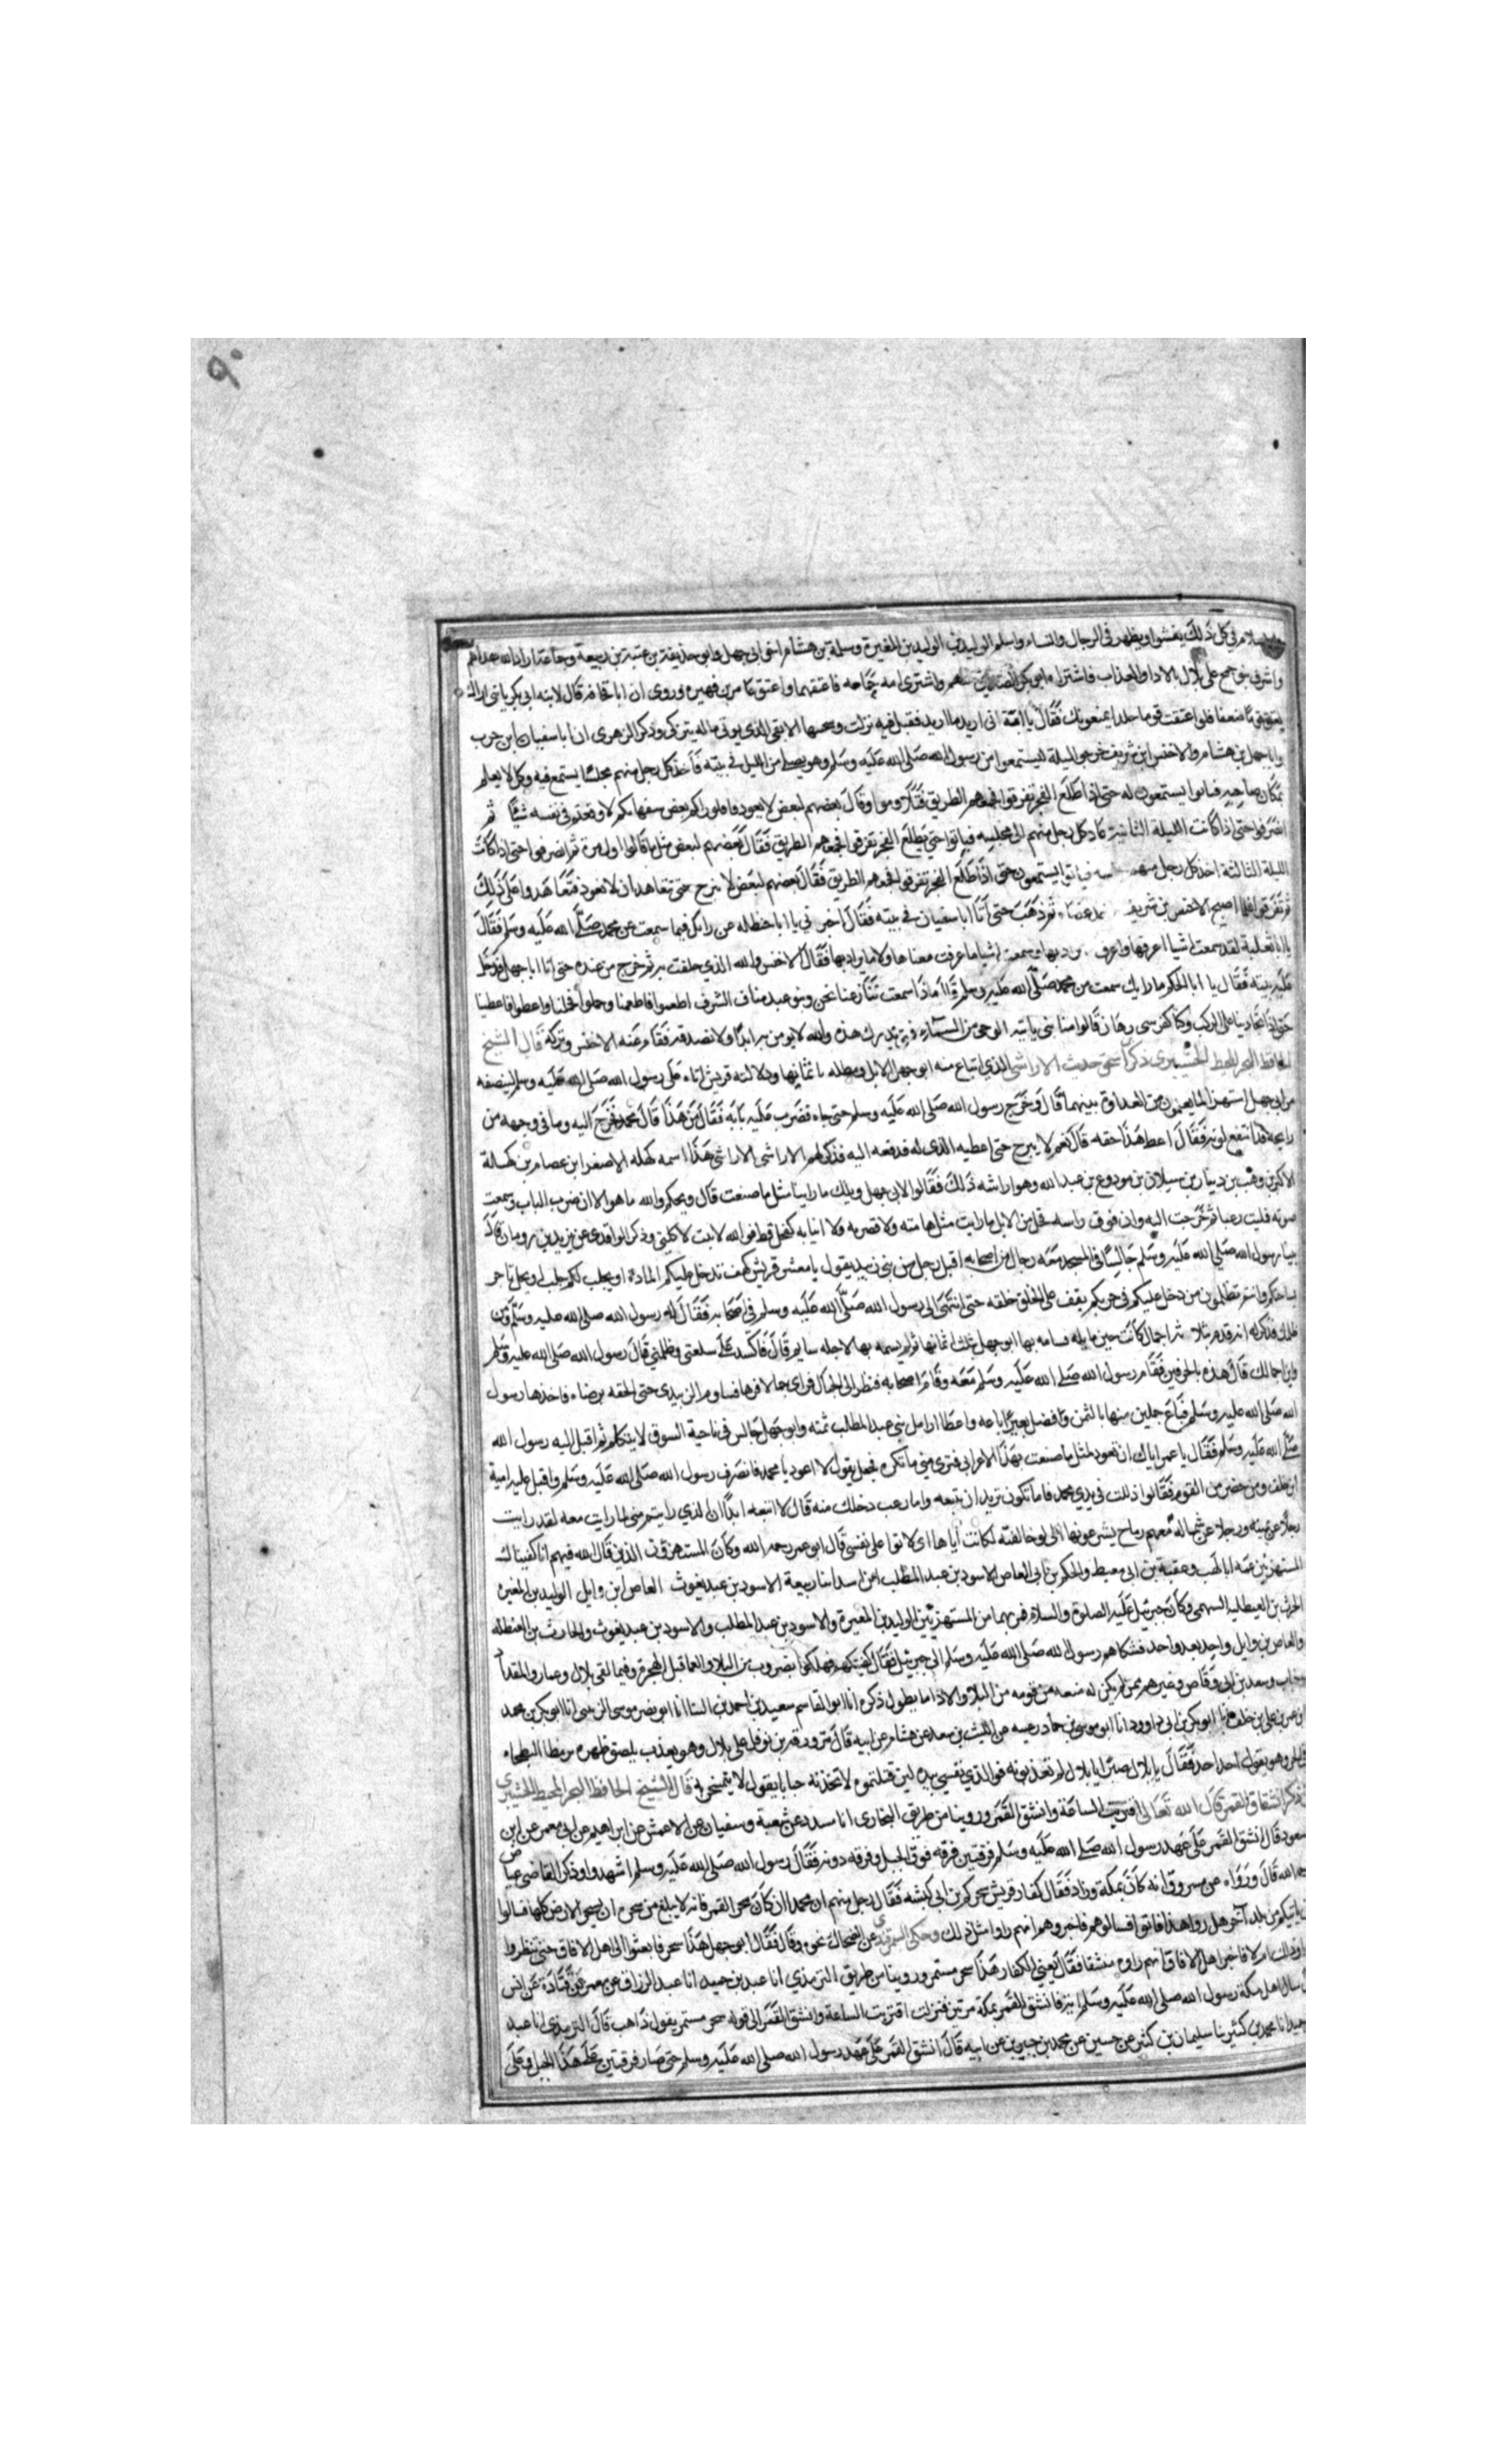 ٩٠
في كل ذلك يفشوا ويظهر في الرجال والنساء واسلم الوليد بن الوليد بن المغيرة وسلمة بن هشام اخو ابي جهل وابو حذيفة بن عتبة بن ربيعة وجماعة اراد الله هداهم
بنو جمح على بلال بالاذا والعذاب فاشتراه ابو بكر الصديق منهم واشترى امه حمامه فاعتقهما واعتق عامر بن فهيره وروى ان ابا قحافه قال لابنه ابي بكر يا بني اراك
تعتق قوما ضعفا فلو اعتقت قوما جلدا يمنعونك فقال يا ابة اني اريد ما اريد فقيل فيه نزلت وسيجنبها الاتقى الذي يوتي ماله يتزكى وذكر الزهرى ان ابا سفيان ابن حرب
وابا جهل بن هشام والاخنس ابن شريف خرجوا ليلة ليستمعوا من رسول الله صلى الله عليه وسلم وهو يصلي من الليل في بيته فاخذ كل رجل منهم مجلسا يستمع فيه وكل لا يعلم
بمكان صاحبه فباتوا يستمعون له حتى اذا طلع الفجر تفرقوا فجمعهم الطريق فتلاوموا وقال بعضهم لبعض لا يعودوا فلو راكم بعض سفهايكم لاوقعتم في نفسه شيئا ثم
انصرفوا حتى اذا كانت الليلة الثانية عاد كل رجل منهم الى مجلسه فباتوا حتى يطلع الفجر تفرقوا فجمعهم الطريق فقال بعضهم لبعض مثل ما قالوا اول مرة ثم انصرفوا حتى اذا كانت
الليلة الثالثة اخذ كل رجل منهم فباتوا يستمعون حتى اذا طلع الفجر تفرقوا فجمعهم الطريق فقال بعضهم لبعض لا نبرح حتى نتعاهد ان لا نعود فتعاهدوا على ذلك
ثم تفرقوا فلما اصبح الاخنس بن شريف عصاه ثم ذهب حتى اتا ابا سفيان في بيته فقال اخبرني يا ابا حنظله عن رايك فيما سمعت عن محمد صلى الله عليه وسلم فقال
يا ابا ثعلبة لقد سمعت اشيا اعرفها واعرف يراد بها وسمعت اشيا ما عرفت معناها ولا ما يراد بها فقال الاخنس والله الذي حلفت به ثم خرج من عنده حتى اتا ابا جهل فدخل
عليه بيته فقال يا ابا الحكم ما رايك سمعت من محمد صلى الله عليه وسلم قال ماذا سمعت تنازعنا نحن وبنو عبد مناف الشرف اطعموا فاطعمنا وحملوا فحملنا واعطوا فاعطينا
حتى اذا تحاذينا على الركب وكنا كفرسي رهان قالوا منا نبي ياتيه الوحي من السماء فمتى ندرك هذه والله لا نومن به ابدا ولا نصدقه فقام عنه الاخنس وتركه قال الشيخ
الحافظ البحر المحيط ذكر ابن اسحق حديث الاراشي الذي ابتاع منه ابو جهل الابل ومطله باثمانها ودلالة قريش اياه على رسول الله صلى الله عليه وسلم لينصفه
من ابي جهل استهزا لما يعلمون من العداوة بينهما قال وخرج رسول الله صلى الله عليه وسلم حتى جاه فضرب عليه بابه فقال من هذا قال محمد فخرج اليه وما في وجهه من
رايحة قد انتقع لونه فقال اعط هذا حقه قال نعم لا يبرح حتى اعطيه الذي له فدفعه اليه فذكر لهم الاراشي الاراشي هذا اسمه كهله الاصغر ابن عصام بن كهلة
الاكبر بن وهب بن دينار بن سيلان بن مودوع بن عبد الله وهو اراشه ذلك فقالوا لابي جهل ويلك ما راينا مثل ما صنعت قال ويحكم والله ما هو الا ان ضرب الباب وسمعت
صوته فمليت رعبا ثم خرجت اليه وان فوق راسه فحل من الابل ما رايت مثل هامته ولا قصرته ولا انيابه كفحل قط فوالله لابيت لاكلني وذكر الواقدى عن يزيد بن رومان قال
بينا رسول الله صلى الله عليه وسلم جالسا في المسجد معه رجال من اصحابه اقبل رجل من بني زبيد يقول يا معشر قريش كيف تدخل عليكم المادة او يجلب لكم جلب او يحل تاجر
بساحتكم وانتم تظلمون من دخل عليكم في حرمكم يقف على الحلق حلقه حتى انتهى الى رسول الله صلى الله عليه وسلم في اصحابه فقال له رسول الله صلى الله عليه وسلم ومن
ظلمك فذكر له انه قدم بثلاثة اجمال كانت حين ماله فسامه بها ابو جهل بثلث اثمانها ثم لم يسمه بها لاجله سايم قال فاكسد على سلعتي وظلمني قال رسول الله صلى الله عليه وسلم
واين اجمالك قال هذه بالحزورة فقام رسول الله صلى الله عليه وسلم معه وقام اصحابه فنظر الى الجمال فراى جمالا فرها فساوم الزبيدى حتى الحقه برضاه فاخذها رسول
الله صلى الله عليه وسلم فباع جملين منها بالثمن وافضل بعيرا باعه واعطا ارامل بني عبد المطلب ثمنه وابو جهل جالس في ناحية السوق لا يتكلم ثم اقبل اليه رسول الله
صلى الله عليه وسلم فقال يا عمر اياك ان تعود لمثل ما صنعت بهذا الاعرابي فترى مني ما تكره فجعل يقول لا اعود يا محمد فانصرف رسول الله صلى الله عليه وسلم واقبل عليه امية
ابن خلف ومن حضر من القوم فقالوا ذللت في يدي محمد فاما تكون تريد ان تتبعه واما رعب دخلك منه قال لا اتبعه ابدا ان الذي رايتم مني لما رايت معه لقد رايت
رجلا عن يمينه ورجلا عن شماله معهم رماح يشرعونها الي لو خالفته لكانت اياها اى لاتوا على نفسي قال ابو عمر رحمه الله وكان المستهزؤن الذين قال الله فيهم انا كفيناك
المستهزئين عمه ابا لهب وعقبة بن ابي معيط والحكم بن ابي العاص الاسود بن عبد المطلب ابن اسد ابا ربيعة الاسود بن عبد يغوث العاص ابن وايل الوليد بن المغيره
الحرث بن الغيطليه السهمي وكان جبريل عليه الصلوة والسلام فر بهما من المستهزئين الوليد بن المغيرة والاسود بن عبد المطلب والاسود بن عبد يغوث والحارث بن الغيطله
والعاص بن وايل واحد بعد واحد فشكاهم رسول الله صلى الله عليه وسلم الى جبريل فقال كفيتكهم فهلكوا بضروب من البلا والعما قبل الهجرة وفيما لقى بلال وعمار والمقداد
وخباب وسعد بن ابي وقاص وغيرهم ممن لم يكن له منعه من قومه من البلا والاذا ما يطول ذكره انا ابو القاسم سعيد بن احمد بن البنا انا ابو نصر موسى الزينبي انا ابو بكر بن محمد
ابن عمر بن علي بن خلف ابو بكر بن ابي داوود انا ابو موسى بن حماد رعبه عن الليث بن سعد عن هشام عن ابيه قال مر ورقة بن نوفل على بلال وهو يعذب يلصق ظهره برمضا البطحاء
وهو يقول احد احد فقال يا بلال صبرا يا بلال لم تعذبونه فوالذي نفسي بيده لين قتلتموه لاتخذنه حنانا يقول لا تمسحن به قال الشيخ الحافظ البحر المحيط
ذكر انشقاق القمر قال الله تعالى اقتربت الساعة وانشق القمر وروينا من طريق البخارى انا مسدد عن شعبة وسفيان عن الاعمش عن ابراهيم عن ابي معمر عن ابن
مسعود قال انشق القمر على عهد رسول الله صلى الله عليه وسلم فرقتين فرقه فوق الجبل وفرقه دونه فقال رسول الله صلى الله عليه وسلم اشهدوا وذكر القاضي عياض
الله قال ورواه عن مسروق انه كان بمكة وزاد فقال كفار قريش سحركم بن ابي كبشه فقال رجل منهم ان محمدا ان كان سحر القمر فانه لا يبلغ من سحره ان يسحر الارض كلها فسالوا
من ياتيكم من بلد آخر هل رواهذا فاتوا فسالوهم فاخبروهم انهم راوا مثل ذلك وحكى السمرقندي عن الضحاك نحوه وقال فقال ابو جهل هذا سحر فابعثوا الى اهل الافاق حتى ينظروا
اراوا ذلك ام لا فاخبر اهل الافاق انهم راوه منشقا فقال يعني الكفار هذا سحر مستمر وروينا من طريق الترمذي انا عبد بن حميد انا عبد الرزاق عن معمر عن قتادة عن انس
سال اهل مكة رسول الله صلى الله عليه وسلم اية فانشق القمر بمكة مرتين فنزلت اقتربت الساعة وانشق القمر الى قوله سحر مستمر يقول ذاهب قال الترمذي انا عبد
حميد انا محمد بن كثير نا سليمان بن كثير عن حسين عن محمد بن جبير بن عن ابيه قال انشق القمر على عهد رسول الله صلى الله عليه وسلم حتى صار فرقتين على هذا الجبل وعلى